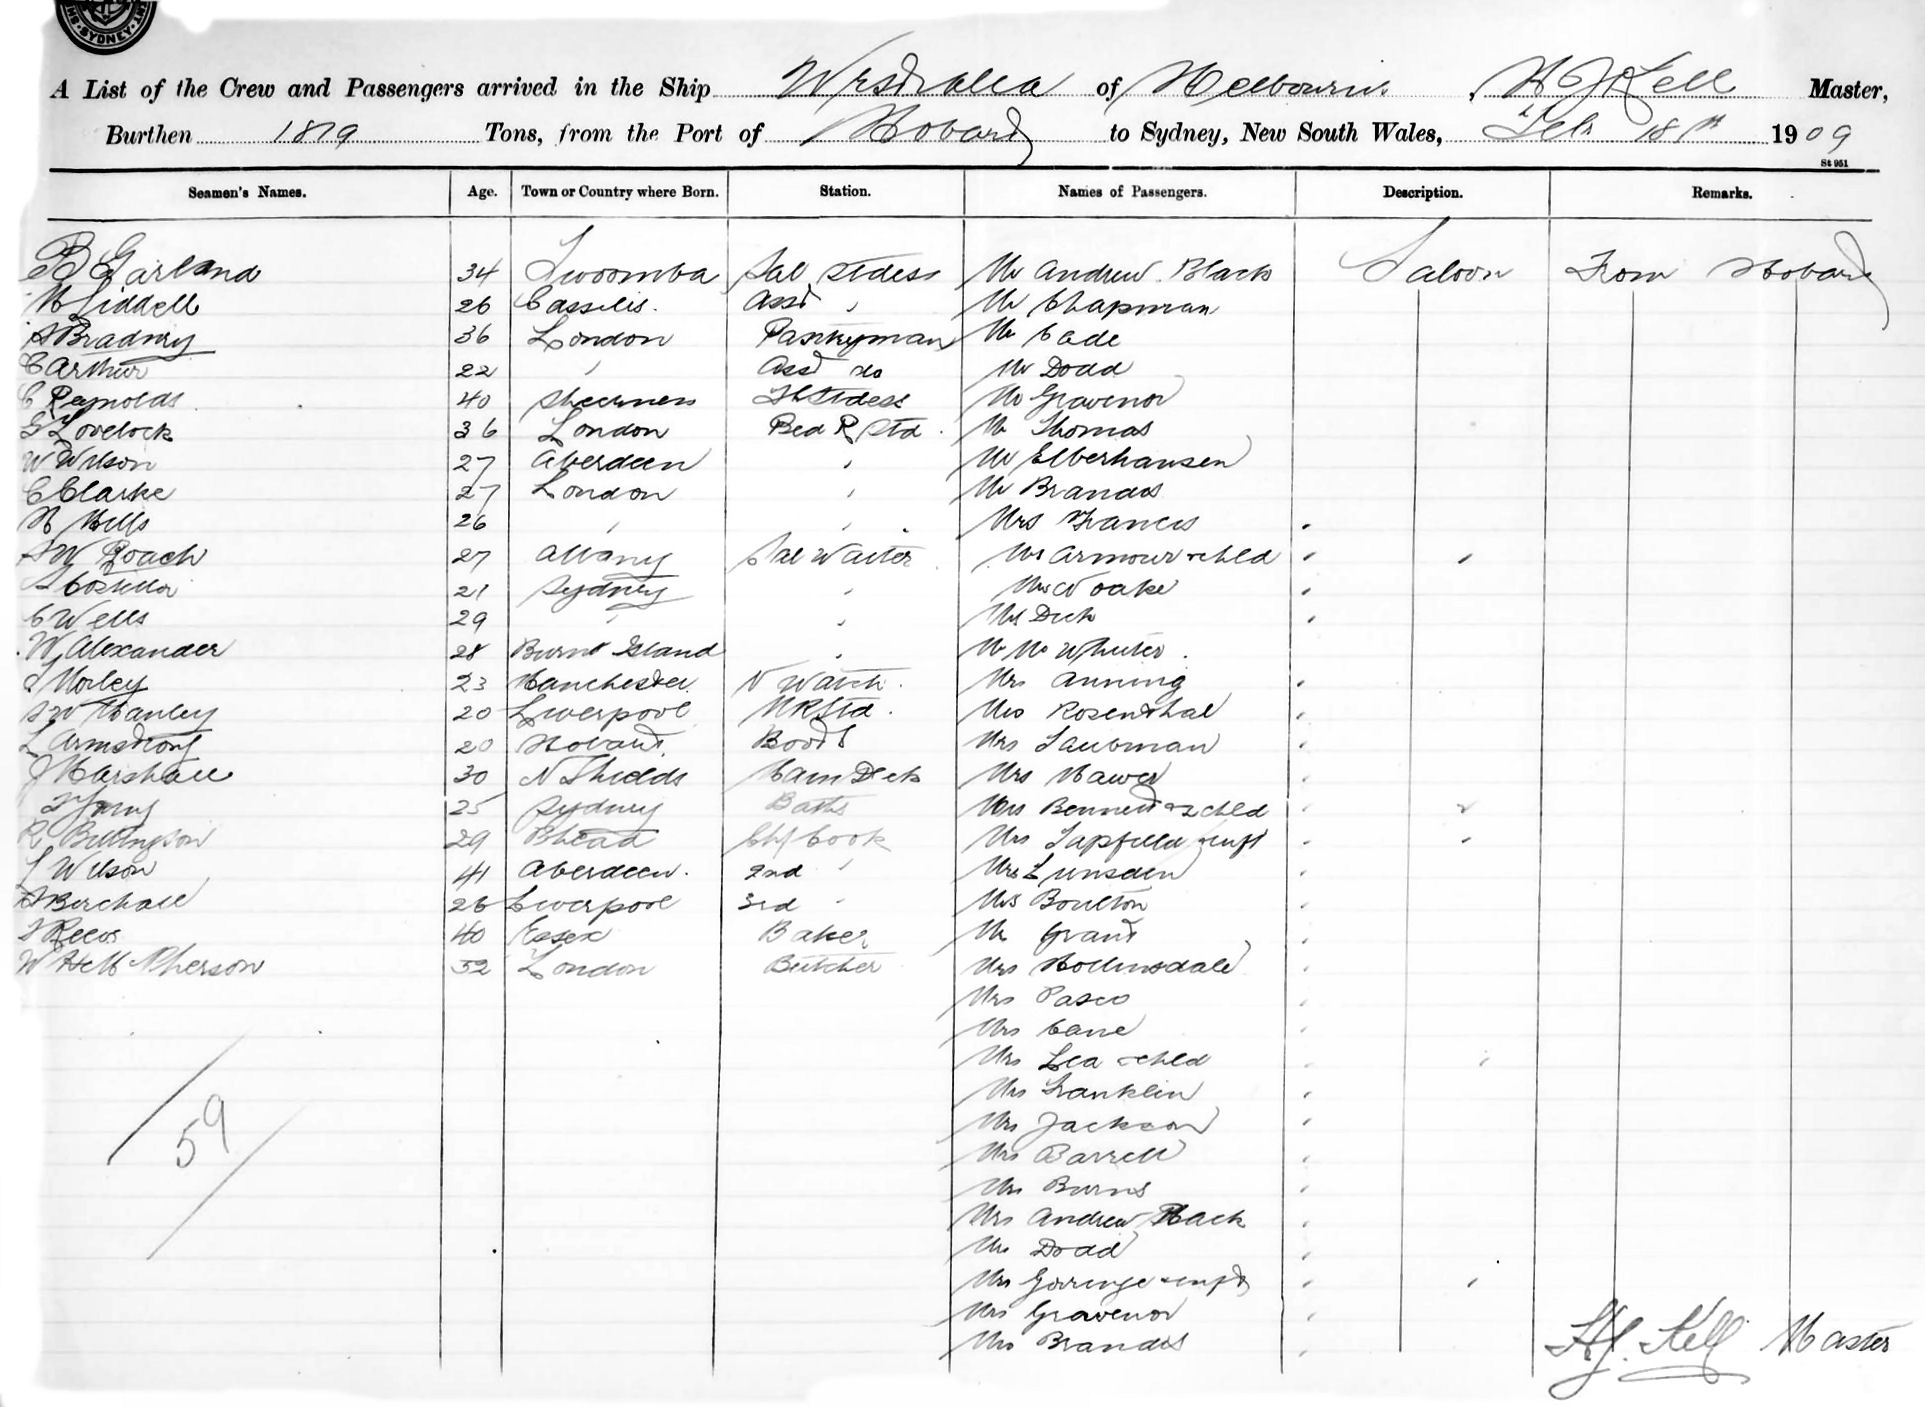 SYDNEY
A List of the Crew and Passengers arrived in the Ship Westralia of Melbourne, H J Kell Master,
Burthen 1819 Tons, from the Port of Hobart to Sydney, New South Wales, Feb 18th 1909
St 951
Seamen's Names. Age. Town or Country where Born. Station. Names of Passengers. Description. Remarks.
B Garland 34 Twoomba Sal Stdess Mr Andrew Black Saloon From Hobart
M Liddell 26 Cassilis. Asst " Mr Chapman
A Bradney 36 London Pantryman Mr Cade
C Arthur 22 " Asst do Mr Dodd
C Reynolds 40 Sheerness Stdess Mr Gravenor
G Lovelock 36 London Bed R Std. Mr Thomas
W Wilson 27 Aberdeen " Mr Elberhausen
C Clarke 27 London " Mr Brandis
H Mills 26 " " Mrs Francis "
S W Roach 27 Albany Sal Waiter Mrs Armour & chld " "
A Costello 21 Sydney " Mrs Woake "
C Wells 29 " " Mrs Dick "
W Alexander 28 Burnt Island " Mr Mc Whirter.
Morley 23 Manchester. N Watch. Mrs Anning "
S W Hanley 20 Liverpool Std. Mrs Rosenthal "
L Armstrong 20 Hobart. Boots Mrs Laubman "
J Marshall 30 N Shields Main Deck Mrs Hawer "
25 Sydney Baths Mrs Bennett & 2 chld " 2
R Billingson 29 Bhead Chf Cook Mrs Tapfield & inft " "
L Wilson 41 Aberdeen. 2nd " Mrs Lumsden "
A Birchall 26 Liverpool 3rd " Mrs Boulton "
Reeves 40 Essex Baker Mr Grant "
W H McPherson 32 London Butcher Mrs Hollinsdale "
Mrs Pasco "
Mrs Cane "
Mrs Lea & chld " "
Mrs Franklin "
Mrs Jackson "
Mrs Barrett "
Mrs Burns "
Mrs Andrew Black "
Mrs Dodd "
Mrs Gorringe & inft " "
Mrs Gravenor "
Mrs Brandis "
59
H J. Kell Master